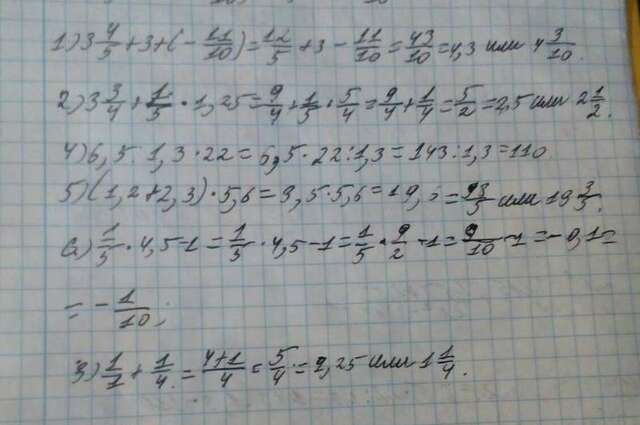 1) 3 4/5 + 3 + (- 11/10) = 12/5 + 3 - 11/10 = 43/10 = 4,3 или 4 3/10.
2) 3 3/4 + 1/5 · 1,25 = 9/4 + 1/5 · 5/4 = 9/4 + 1/4 = 5/2 = 2,5 или 2 1/2.
4) 6,5 : 1,3 · 22 = 6,5 · 22 : 1,3 = 143 : 1,3 = 110
5) (1,2 + 2,3) · 5,6 = 3,5 · 5,6 = 19,6 = 93/5 или 19 3/5.
6) 1/5 · 4,5 - 1 = 1/5 · 4,5 - 1 = 1/5 · 9/2 - 1 = 9/10 - 1 = - 0,1 =
= - 1/10;
3) 1/1 + 1/4 = 4+1/4 = 5/4 = 1,25 или 1 1/4.